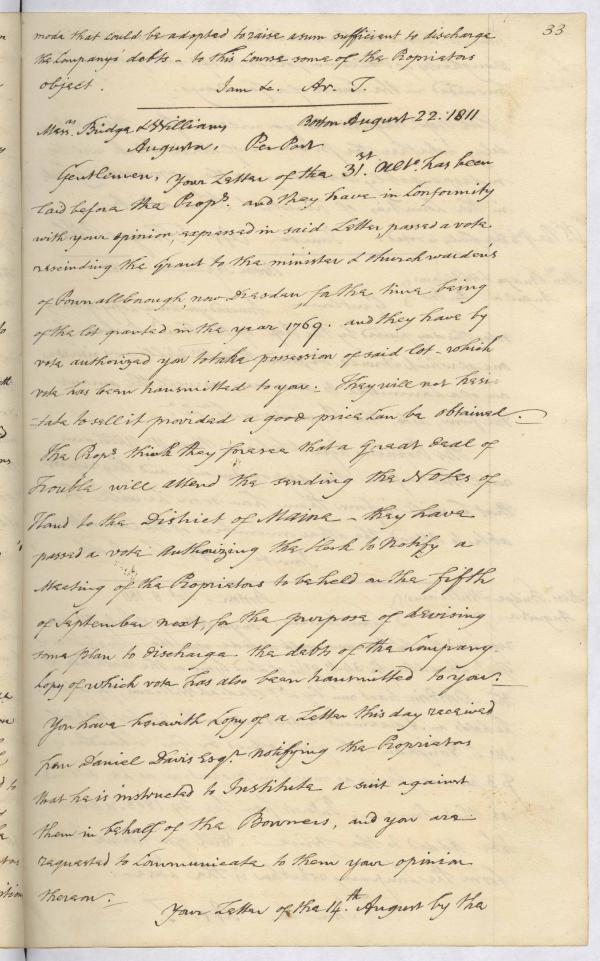 33
mode that could be adopted to raise a sum sufficient to discharge
the Company's debts - to this Course some of the Proprietors
object. I am &c. Ar. T.
Mess.rs Bridge & Williams Boston August 22. 1811
Augusta, Per Post
Gentlemen, Your Letter of the 31st. Ulto. has been
laid before the Prop.s and they have in Conformity
with your opinion, expressed in said Letter, passed a vote
rescinding the Grant to the minister & Church wardens
of Pownallborough, now Dresden, for the time being
of the lot granted in the year 1769. and they have by
vote authorized you to take possession of said lot - which
vote has been transmitted to you - They will not hesi-
-tate to sell it provided a good price can be obtained.
The Prop.s think they foresee that a Great deal of
Trouble will attend the sending the Notes of
Hand to the District of Maine - they have
passed a vote authorizing the Clerk to Notify a
Meeting of the Proprietors to be held on the fifth
of September next, for the purpose of devising
some plan to discharge the debts of the Company
Copy of which vote has also been transmitted to you.
You have herewith Copy of a Letter this day received
from Daniel Davis Esq.r notifying the Proprietors
that he is instructed to Institute a suit against
them in behalf of the Bowners, and you are
requested to Communicate to them your opinion
thereon.
Your Letter of the 14th. August by the